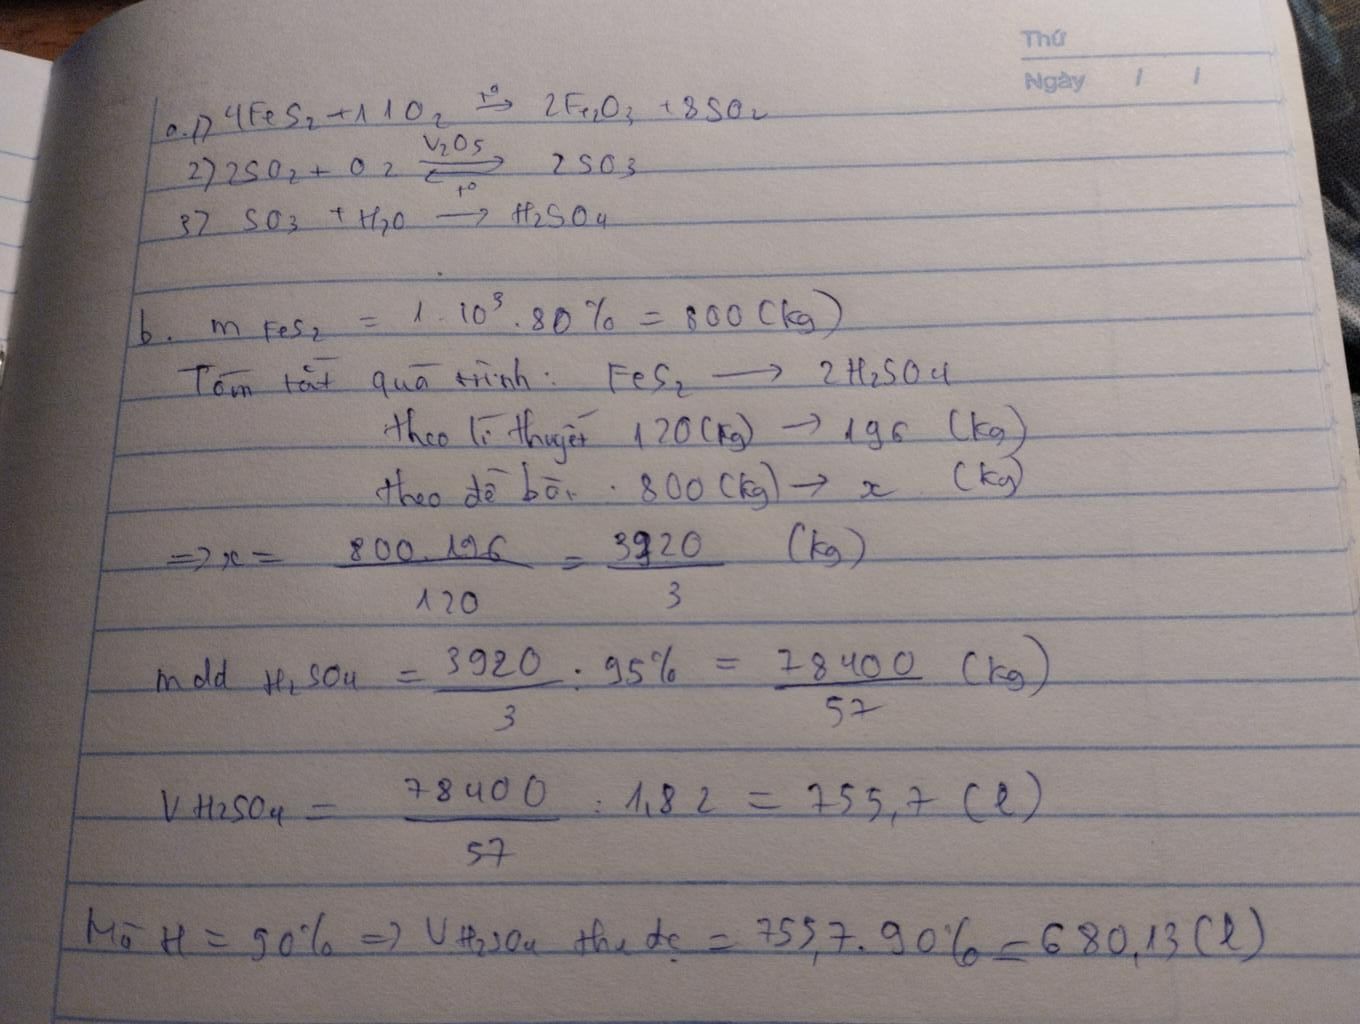 Thứ
Ngày / /
a. 1) 4FeS2 + 11O2 t° → 2Fe2O3 + 8SO2
2) 2SO2 + O2 V2O5 ⇌ t° 2SO3
3) SO3 + H2O → H2SO4
b. m FeS2 = 1.10³.80% = 800 (kg)
Tóm tắt quá trình: FeS2 → 2H2SO4
theo lí thuyết 120 (kg) → 196 (kg)
theo đề bài . 800 (kg) → x (kg)
=> x = 800.196 / 120 = 3920 / 3 (kg)
mdd H2SO4 = 3920 / 3 : 95% = 78400 / 57 (kg)
V H2SO4 = 78400 / 57 : 1,82 = 755,7 (l)
Mà H = 90% => V H2SO4 thu đc = 755,7.90% = 680,13 (l)